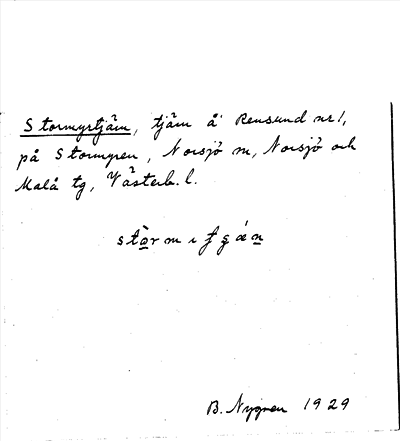 Stormyrtjärn, tjärn å Rensund nr 1,
på Stormyren, Norsjö sn, Norsjö och
Malå tg, Västerb. l.
B. Nygren 1929